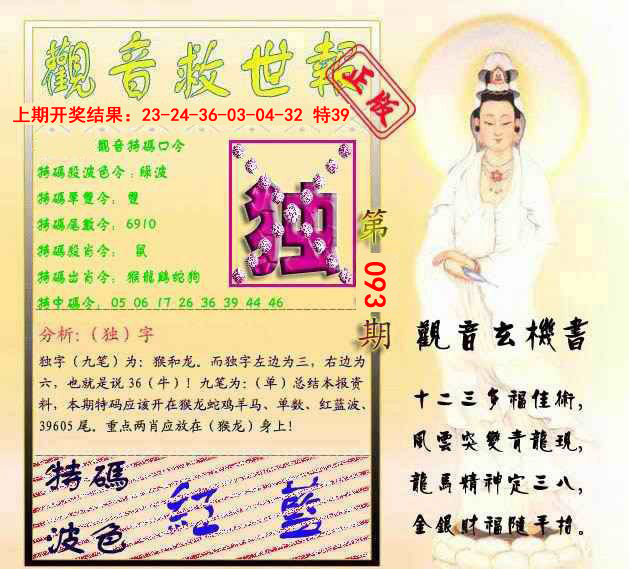 觀音救世報
正版
上期开奖结果：23-24-36-03-04-32 特39
觀音特碼口令
特碼殺波色令：綠波
特碼單雙令：雙
特碼尾數令：6910
特碼殺肖令：鼠
特碼出肖令：猴龍鷄蛇狗
特中碼令：05 06 17 26 36 39 44 46
独
第093期
分析:（独）字
独字（九笔）为：猴和龙。而独字左边为三，右边为
六，也就是说36（牛）！九笔为：（单）总结本报资
料，本期特码应该开在猴龙蛇鸡羊马、单数、红蓝波、
39605尾。重点两肖应放在（猴龙）身上！
特碼
波色
紅 藍
觀音玄機書
十二三多福佳術，
風雲突變青龍現，
龍馬精神定三八，
金銀財福隨手拾。